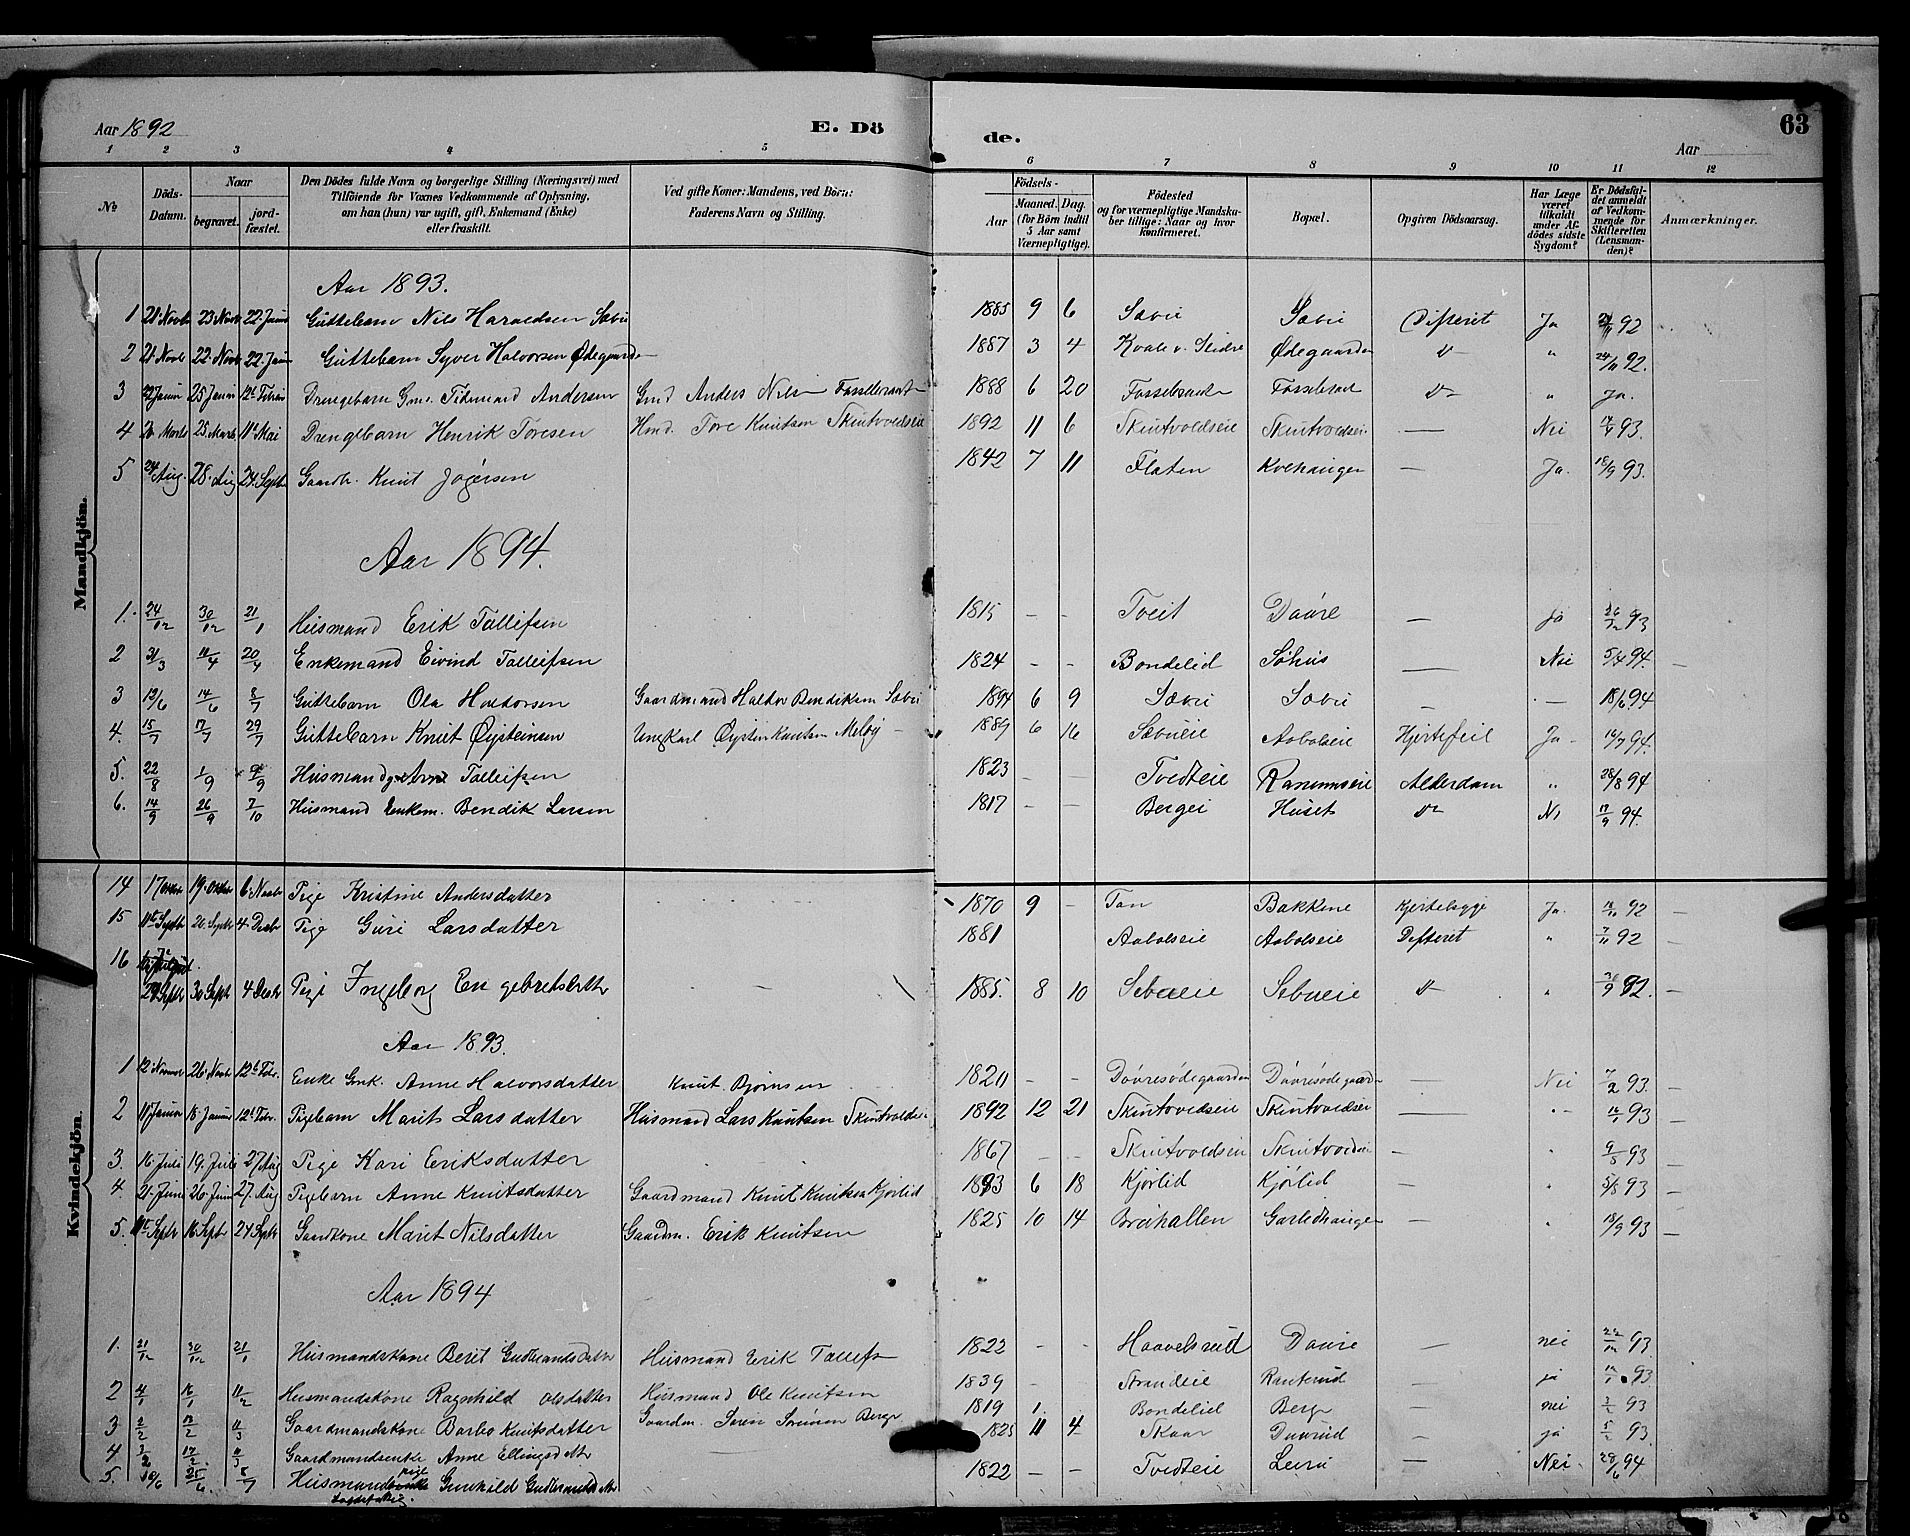 Aar 1892 E. Dö de. Aar 63
1 2 3 4 5 6 7 8 9 10 11 12
No Döds-Datum. Naar begravet. jord-fæstet. Den Dödes fulde Navn og borgerlige Stilling (Næringsvei) med Tilföiende for Voxnes Vedkommende af Oplysning, om han (hun) var ugift, gift, Enkemand (Enke) eller fraskilt. Ved gifte Koner: Mandens, ved Börn: Faderens Navn og Stilling. Födsels- Aar Maaned. Dag. (for Börn indtil 5 Aar samt Værnepligtige). Födested og for værnepligtige Mandskaber tillige: Naar og hvor konfirmeret. Bopæl. Opgiven Dödsaarsag. Har Læge været tilkaldt under Afdödes sidste Sygdom? Er Dödsfaldet anmeldt af Vedkommende for Skifteretten (Lensmanden)? Anmærkninger.
Mandkjön.
Aar 1893.
1 21. Novbr 23 Novbr 22. Januar Guttebarn Nils Haraldsen Sæbu 1885 9 6 Sæbu Sæbu Difteret Ja 92
2 21. Novbr 22. Novbr 22. Januar Guttebarn Syver Halvorsen Ødegaarden 1887 3 4 Kvale v. Slidre Ødegaarden " 24/11 92.
3 25 Januar Drengebarn Andersen Gmd Anders Nilsen 1888 6 20 " Ja.
4 25. Marts Mai Drengebarn Henrik Toresen Hmd. Tore Knutsen Skuitvoldseie 1892 11 6 Skuitvoldseie Skuitvoldseie — Nei 93.
5 24 Aug. 28. Aug 24. Septbr Gaardbr. Knut Jøgersen 1842 7 11 Flaten Kvehaugen — Ja. 18/9 93.
Aar 1894.
1. 24/12 30/12 21/1 Husmand Erik Tolleifsen 1815 - - Tveit Daure — ja 93
2 31/3 11/4 20/4 Enkemand Eivind Tolleifsen 1824 - - Bondelid Søhus — Nei 5/4 94. —
3 12/6 14/6 8/7 Guttebarn Ola Haldorsen Gaardmand Haldor Bendiksen Sæbu 1894 6 9 Sæbu Sæbu — — 18/6 94
4. 15/7 17/7 29/7 Guttebarn Knut Øysteinsen Ungkarl Øystein Knutsen Meløy 1889 6 16 Sæbueie Aabolseie Hjertefeil Ja 16/7 94.
5. 22/8 1/9 9/9 Husmand Arne Tolleifsen 1823 - - Tvedteie Ranumseie Alderdom " 28/8 94
6. 14/9 26/9 7/10 Husmand Enkem. Bendik Larsen 1817 - - Bergei Huset Nei 17/9 94.
Kvindekjön.
14 17 19. Oktbr 6. Novbr Pige Kristine Andersdatter 1870 9 - Ton Bakkene Kjertelsyge Ja. 92 —
15 11te Septbr 20. Septbr 4. Decbr Pige Guri Larsdatter 1881 Aabolseie Aabolseie Difteret " 7/11 92 —
16 29 Septbr 30 Septbr 4 Decbr Pige Ingeborg Engebretsdatter — 1885. 8 10 Sebueie Sebueie " 92. —
Aar 1893.
1 12. Novbr 26. Novbr 12te Febr. Enke Gmk. Anne Halvorsdatter Knut Bjørnsen 1820 - - Dauresødegaarden Dauresødegaarden — Nei 7/2 93. —
2 11 Januar 18. Januar 12te Febr. Pigebarn Marit Larsdatter Husmand Lars Knutsen Skuitvoldseie 1892 12 21 Skuitvoldseie Skuitvoldseie — " 93 —
3. 16. Juli 19. Juli 27 Aug Pige Kari Eriksdatter 1867 - Skuitvoldseie Skuitvoldseie — " 93 —
4. 21. Juni 26. Juni 27. Aug Pigebarn Anne Knutsdatter Gaardmand Knut Knutsen Kjørlid 1893 6 18 Kjørlid Kjørlid — " 5/8 93 —
5. 11te Septbr 16. Septbr 24 Septbr Gaardkone Marit Nilsdatter Gaardm. Erik Knutsen 1825 10 14 Bruhallen Garlidhaugen — " 18/9 93 —
Aar 1894
1. 21/12 30/12 21/1 Husmandskone Berit Gudbrandsdatter Husmand Erik Tollefs 1822 - - Haavelsrud Daure — nei 22/12 93
2 4/1 16/1 11/2 Husmandskone Ragnhild Olsdatter Husmand Ole Knutsen 1839 - Strandeie Ranterud — ja 93
3 2/2 17/2 11/3 Gaardmandskone Barbo Knutsdatter Gaardm. Søren Berge 1819 1. Bondelid Berge — nei 93
4 3/2 17/2 Gaardmandsenke Anne Ellingsdatter — 1825 11 4 Skaar Daurud — ja 5/2 93.
5. 18/6 25/6 8/7 Husmandspige Gunhild Gudbrandsdatter 1822 - - Tvedteie Leira — Nei 28/6 94